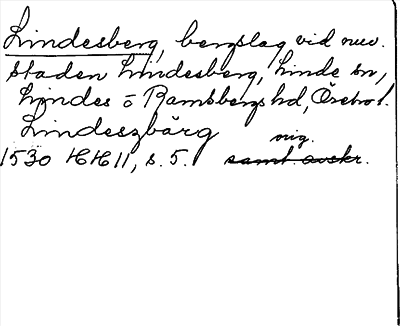 Lindesberg, bergslag vid nuv.
staden Lindesberg, Linde sn,
Lindes o Ramsbergs hd, Örebro l.
Lindeszbärg
orig.
1530 HH 11, s. 5. samt avskr.